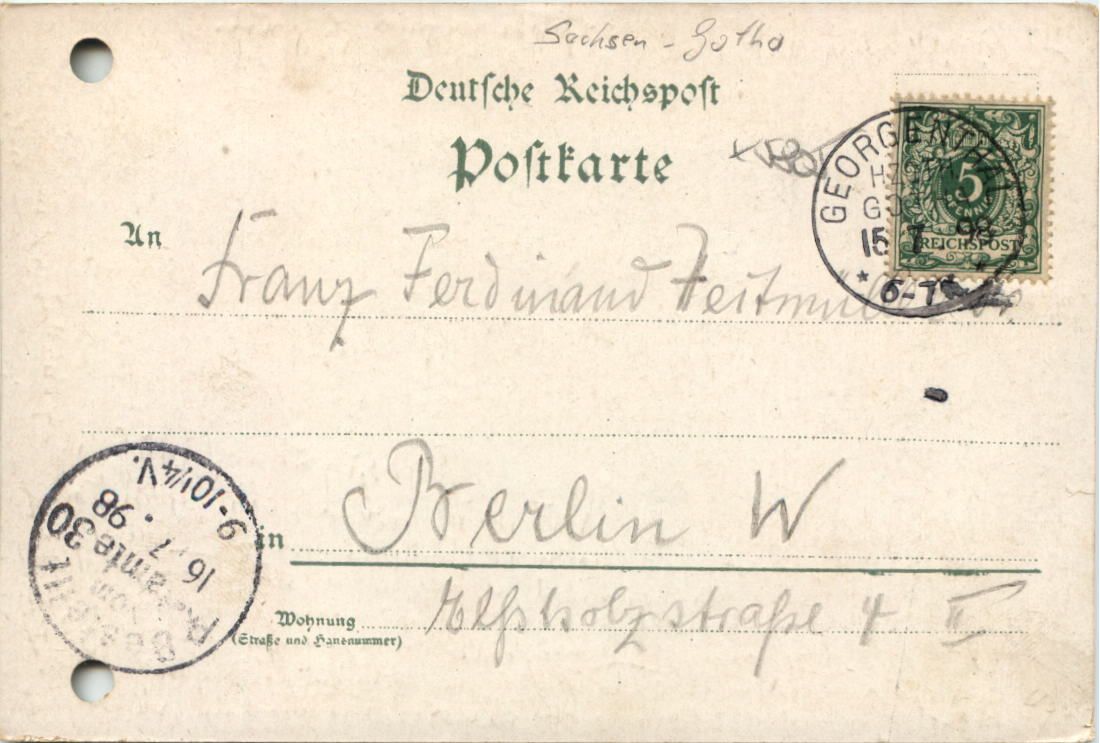 Sachsen - Gotha
Deutsche Reichspost
Postkarte
GEORGENTHAL
15 7 98
6-7
5
PFENNIG
REICHSPOST
An Franz Ferdinand Heitmüller
in Berlin W
Wohnung Elßholzstraße 4 II
(Straße und Hausnummer)
Bestellt
vom
Postamte 30
16 7 98
9-10¼V.